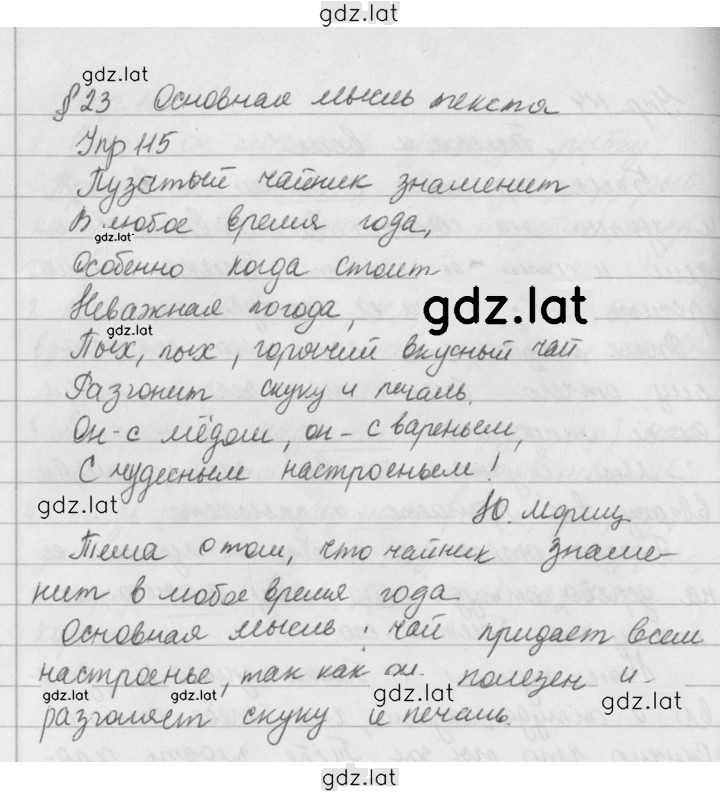 gdz.lat
gdz.lat
§ 23 Основная мысль текста
Упр 115
Пузатый чайник знаменит
В любое время года,
gdz.lat
Особенно когда стоит
Неважная погода,
gdz.lat
gdz.lat
Пых, пых, горячий вкусный чай
Разгонит скуку и печаль.
Он - с мёдом, он - с вареньем,
С чудесным настроеньем!
gdz.lat
Ю. Мориц
Тема о том, что чайник знаме-
нит в любое время года.
gdz.lat
Основная мысль чай придает всем
настроенье, так как он полезен и
gdz.lat gdz.lat gdz.lat gdz.lat
разгоняет скуку и печаль.
gdz.lat